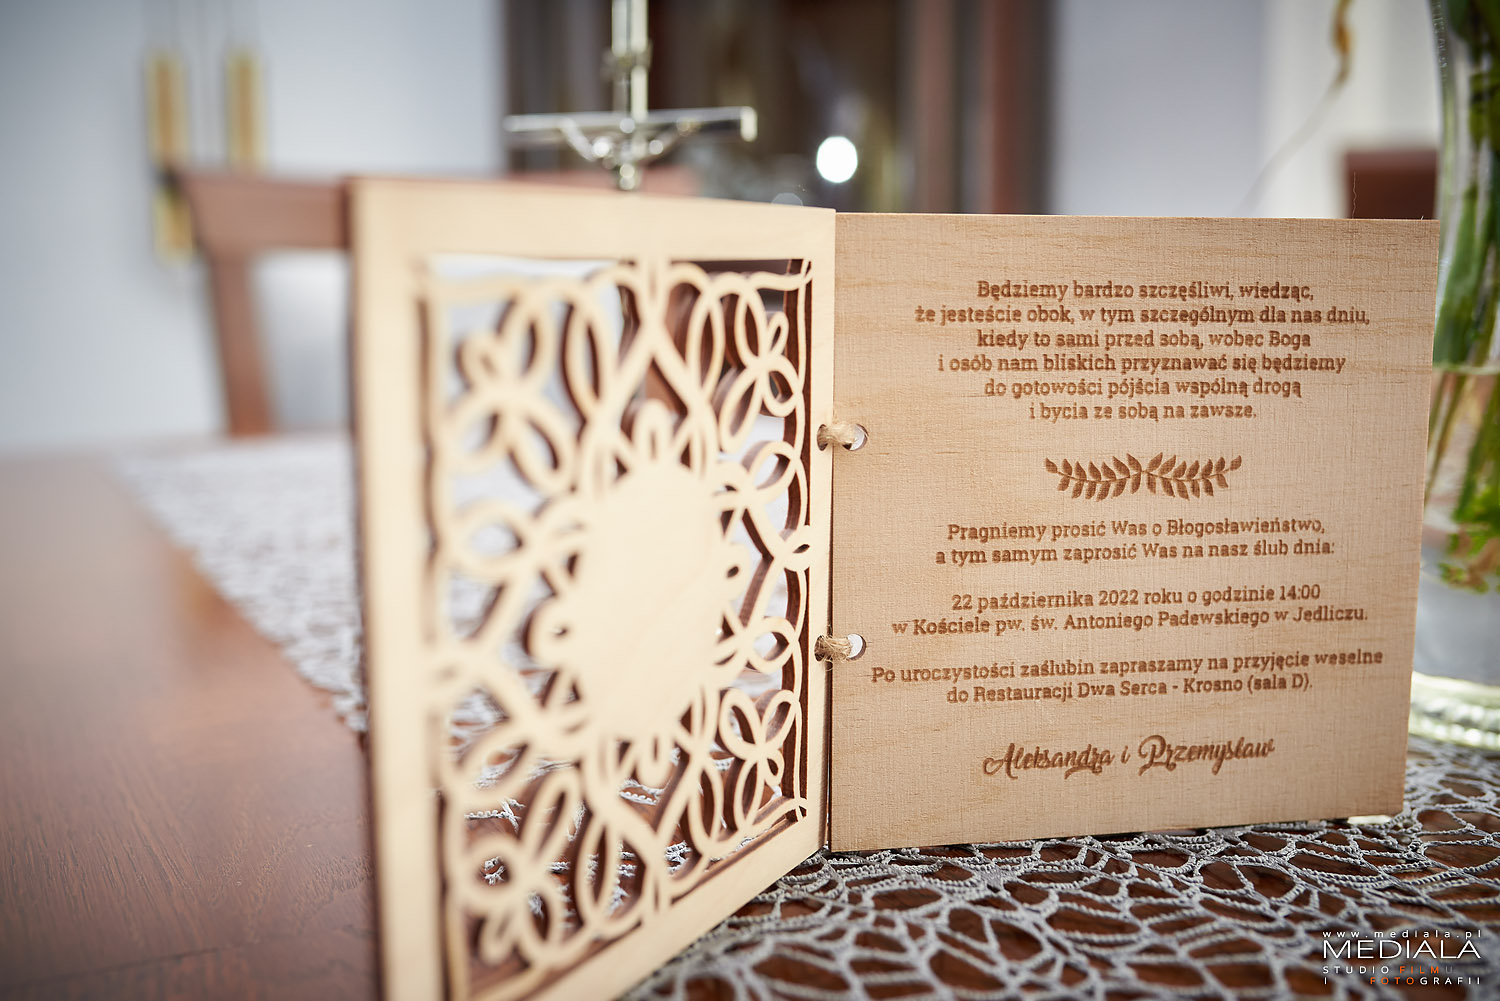 Będziemy bardzo szczęśliwi, wiedząc,
że jesteście obok, w tym szczególnym dla nas dniu,
kiedy to sami przed sobą, wobec Boga
i osób nam bliskich przyznawać się będziemy
do gotowości pójścia wspólną drogą
i bycia ze sobą na zawsze.
Pragniemy prosić Was o Błogosławieństwo,
a tym samym zaprosić Was na nasz ślub dnia:
22 października 2022 roku o godzinie 14:00
w Kościele pw. św. Antoniego Padewskiego w Jedliczu.
Po uroczystości zaślubin zapraszamy na przyjęcie weselne
do Restauracji Dwa Serca - Krosno (sala D).
Aleksandra i Przemysław
www.mediala.pl
MEDIALA
STUDIO FILMU
I FOTOGRAFII